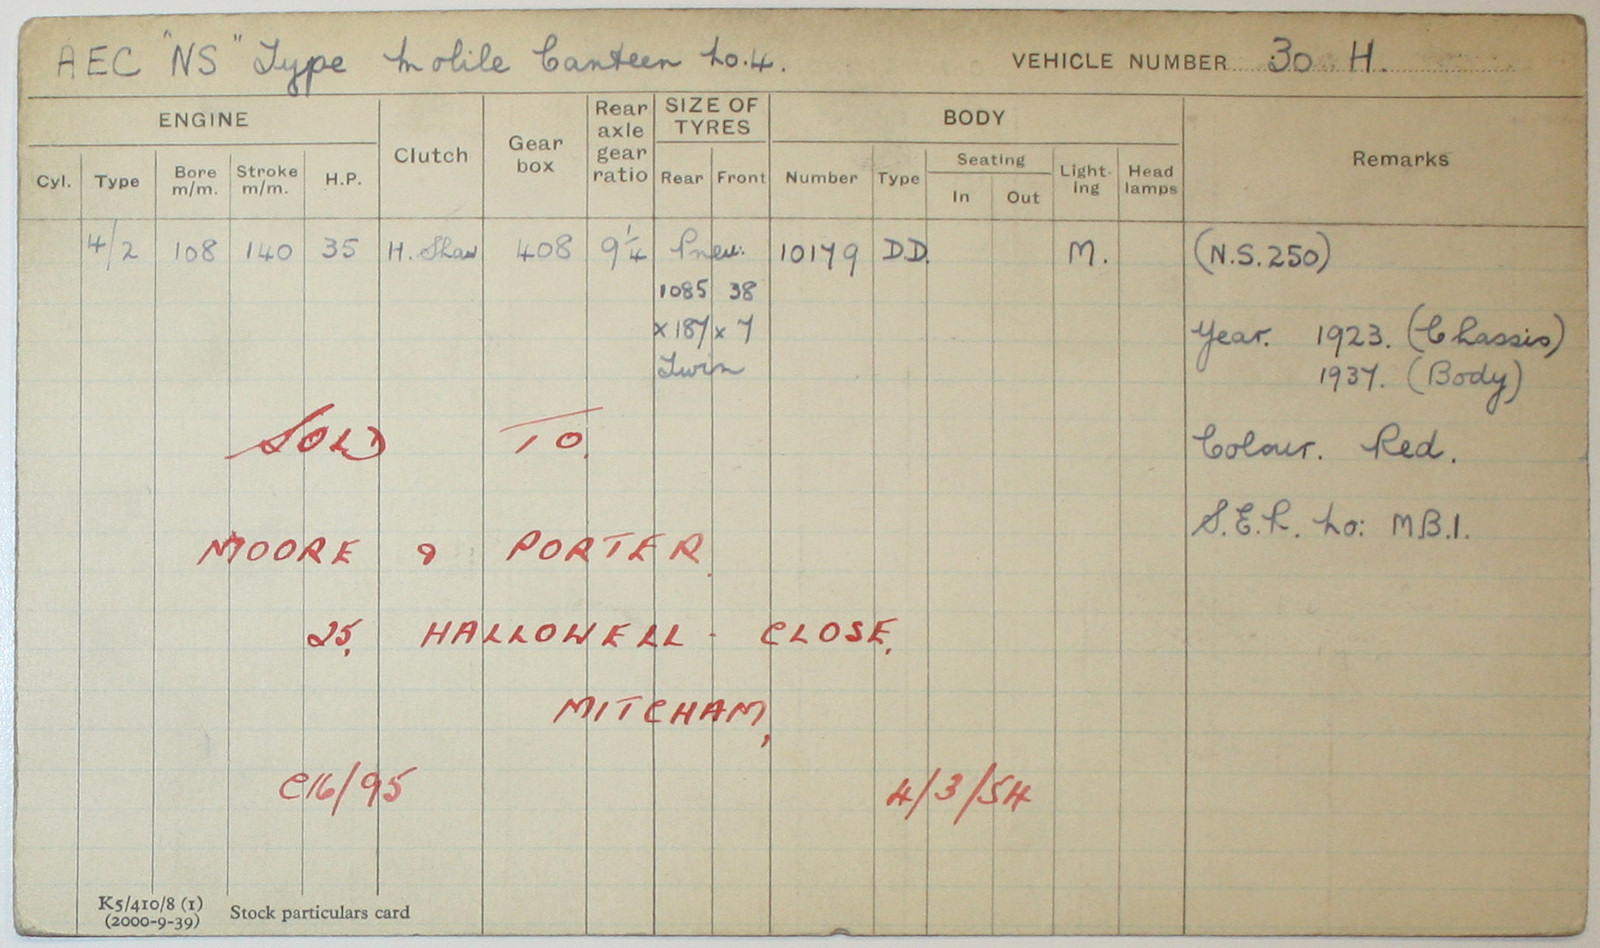 AEC "NS" Type Mobile Canteen No. 4.
VEHICLE NUMBER 30 H.
ENGINE
Clutch
Gear box
Rear axle gear ratio
SIZE OF TYRES
BODY
Remarks
Cyl.
Type
Bore m/m.
Stroke m/m.
H.P.
Rear
Front
Number
Type
Seating
In
Out
Light-ing
Head lamps
4/2 108 140 35 H. Shaw 408 9¼ Pneu. 10179 D.D. M. (N.S.250)
1085 38
x 187 x 7
Twin
Year. 1923. (Chassis)
1937. (Body)
Colour. Red.
S.E.R. No: MB.1.
SOLD TO.
MOORE & PORTER.
25, HALLOWELL - CLOSE,
MITCHAM,
C16/95 4/3/54
K5/410/8 (1)
(2000-9-39)
Stock particulars card